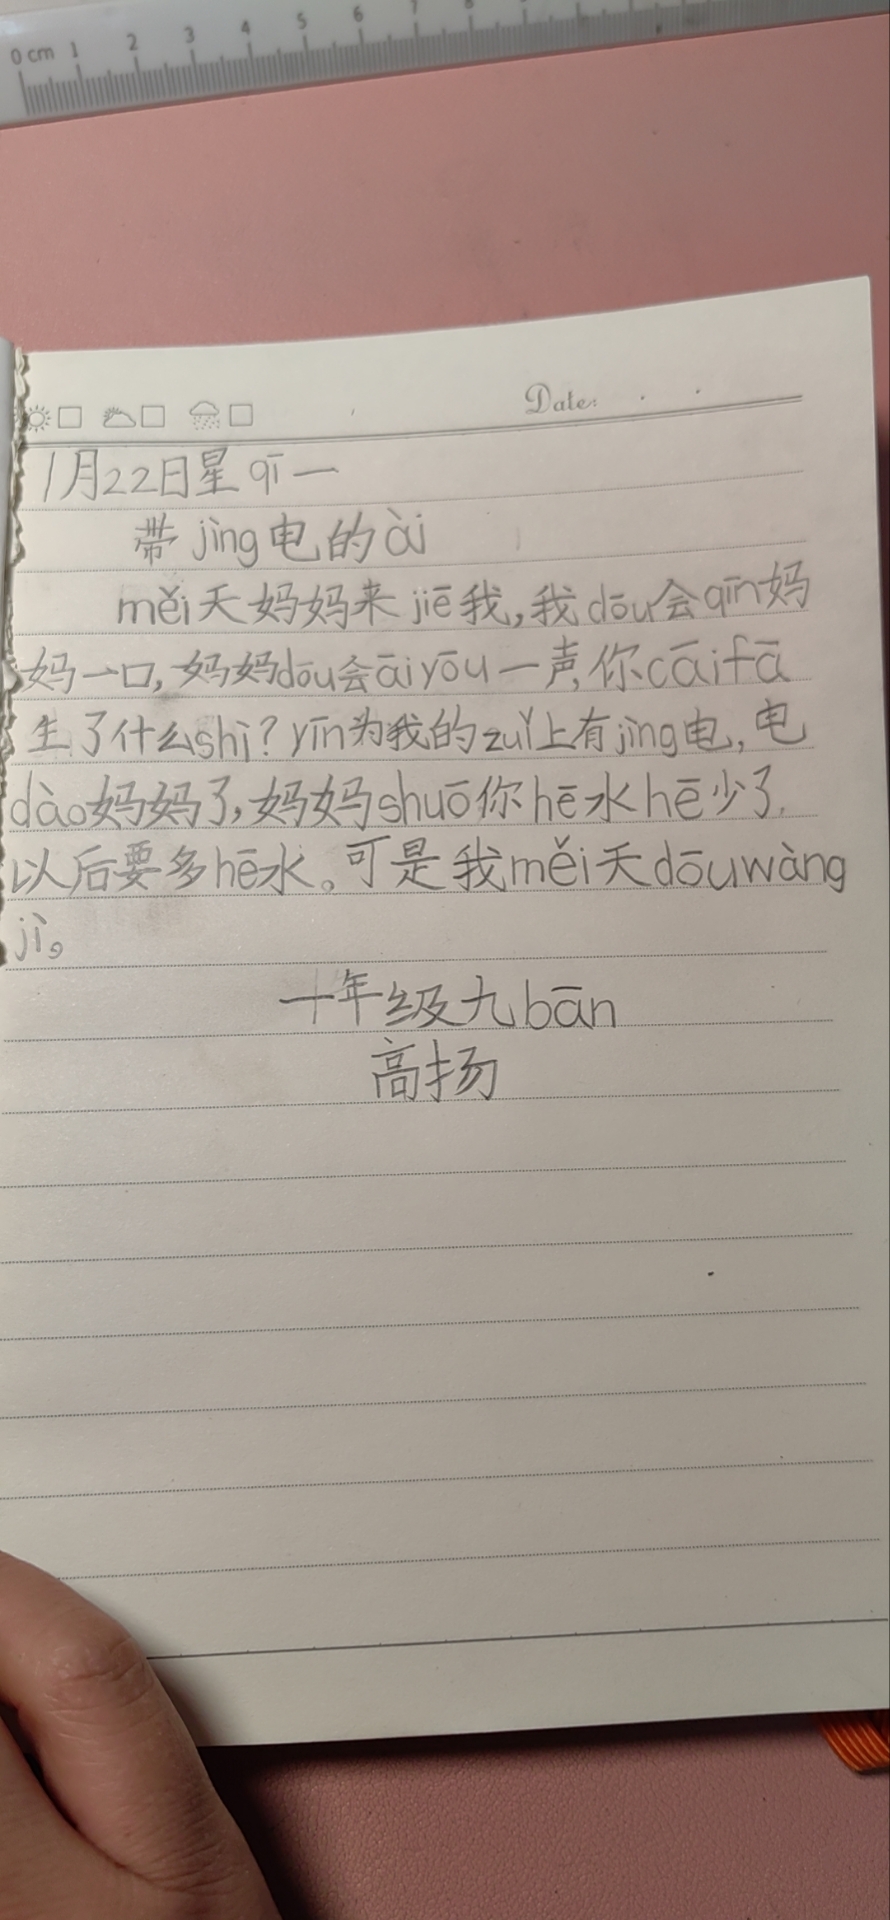 0 cm 1 2 3 4 5 6 7 8
Date:
1月22日星qī一
带jìng电的ài
měi天妈妈来jiē我,我dōu会qīn妈
妈一口,妈妈dōu会āiyōu一声,你cāifā
生了什么shì?yīn为我的zuǐ上有jìng电,电
dào妈妈了,妈妈shuō你hē水hē少了,
以后要多hē水。可是我měi天dōuwàng
jì。
一年级九bān
高扬